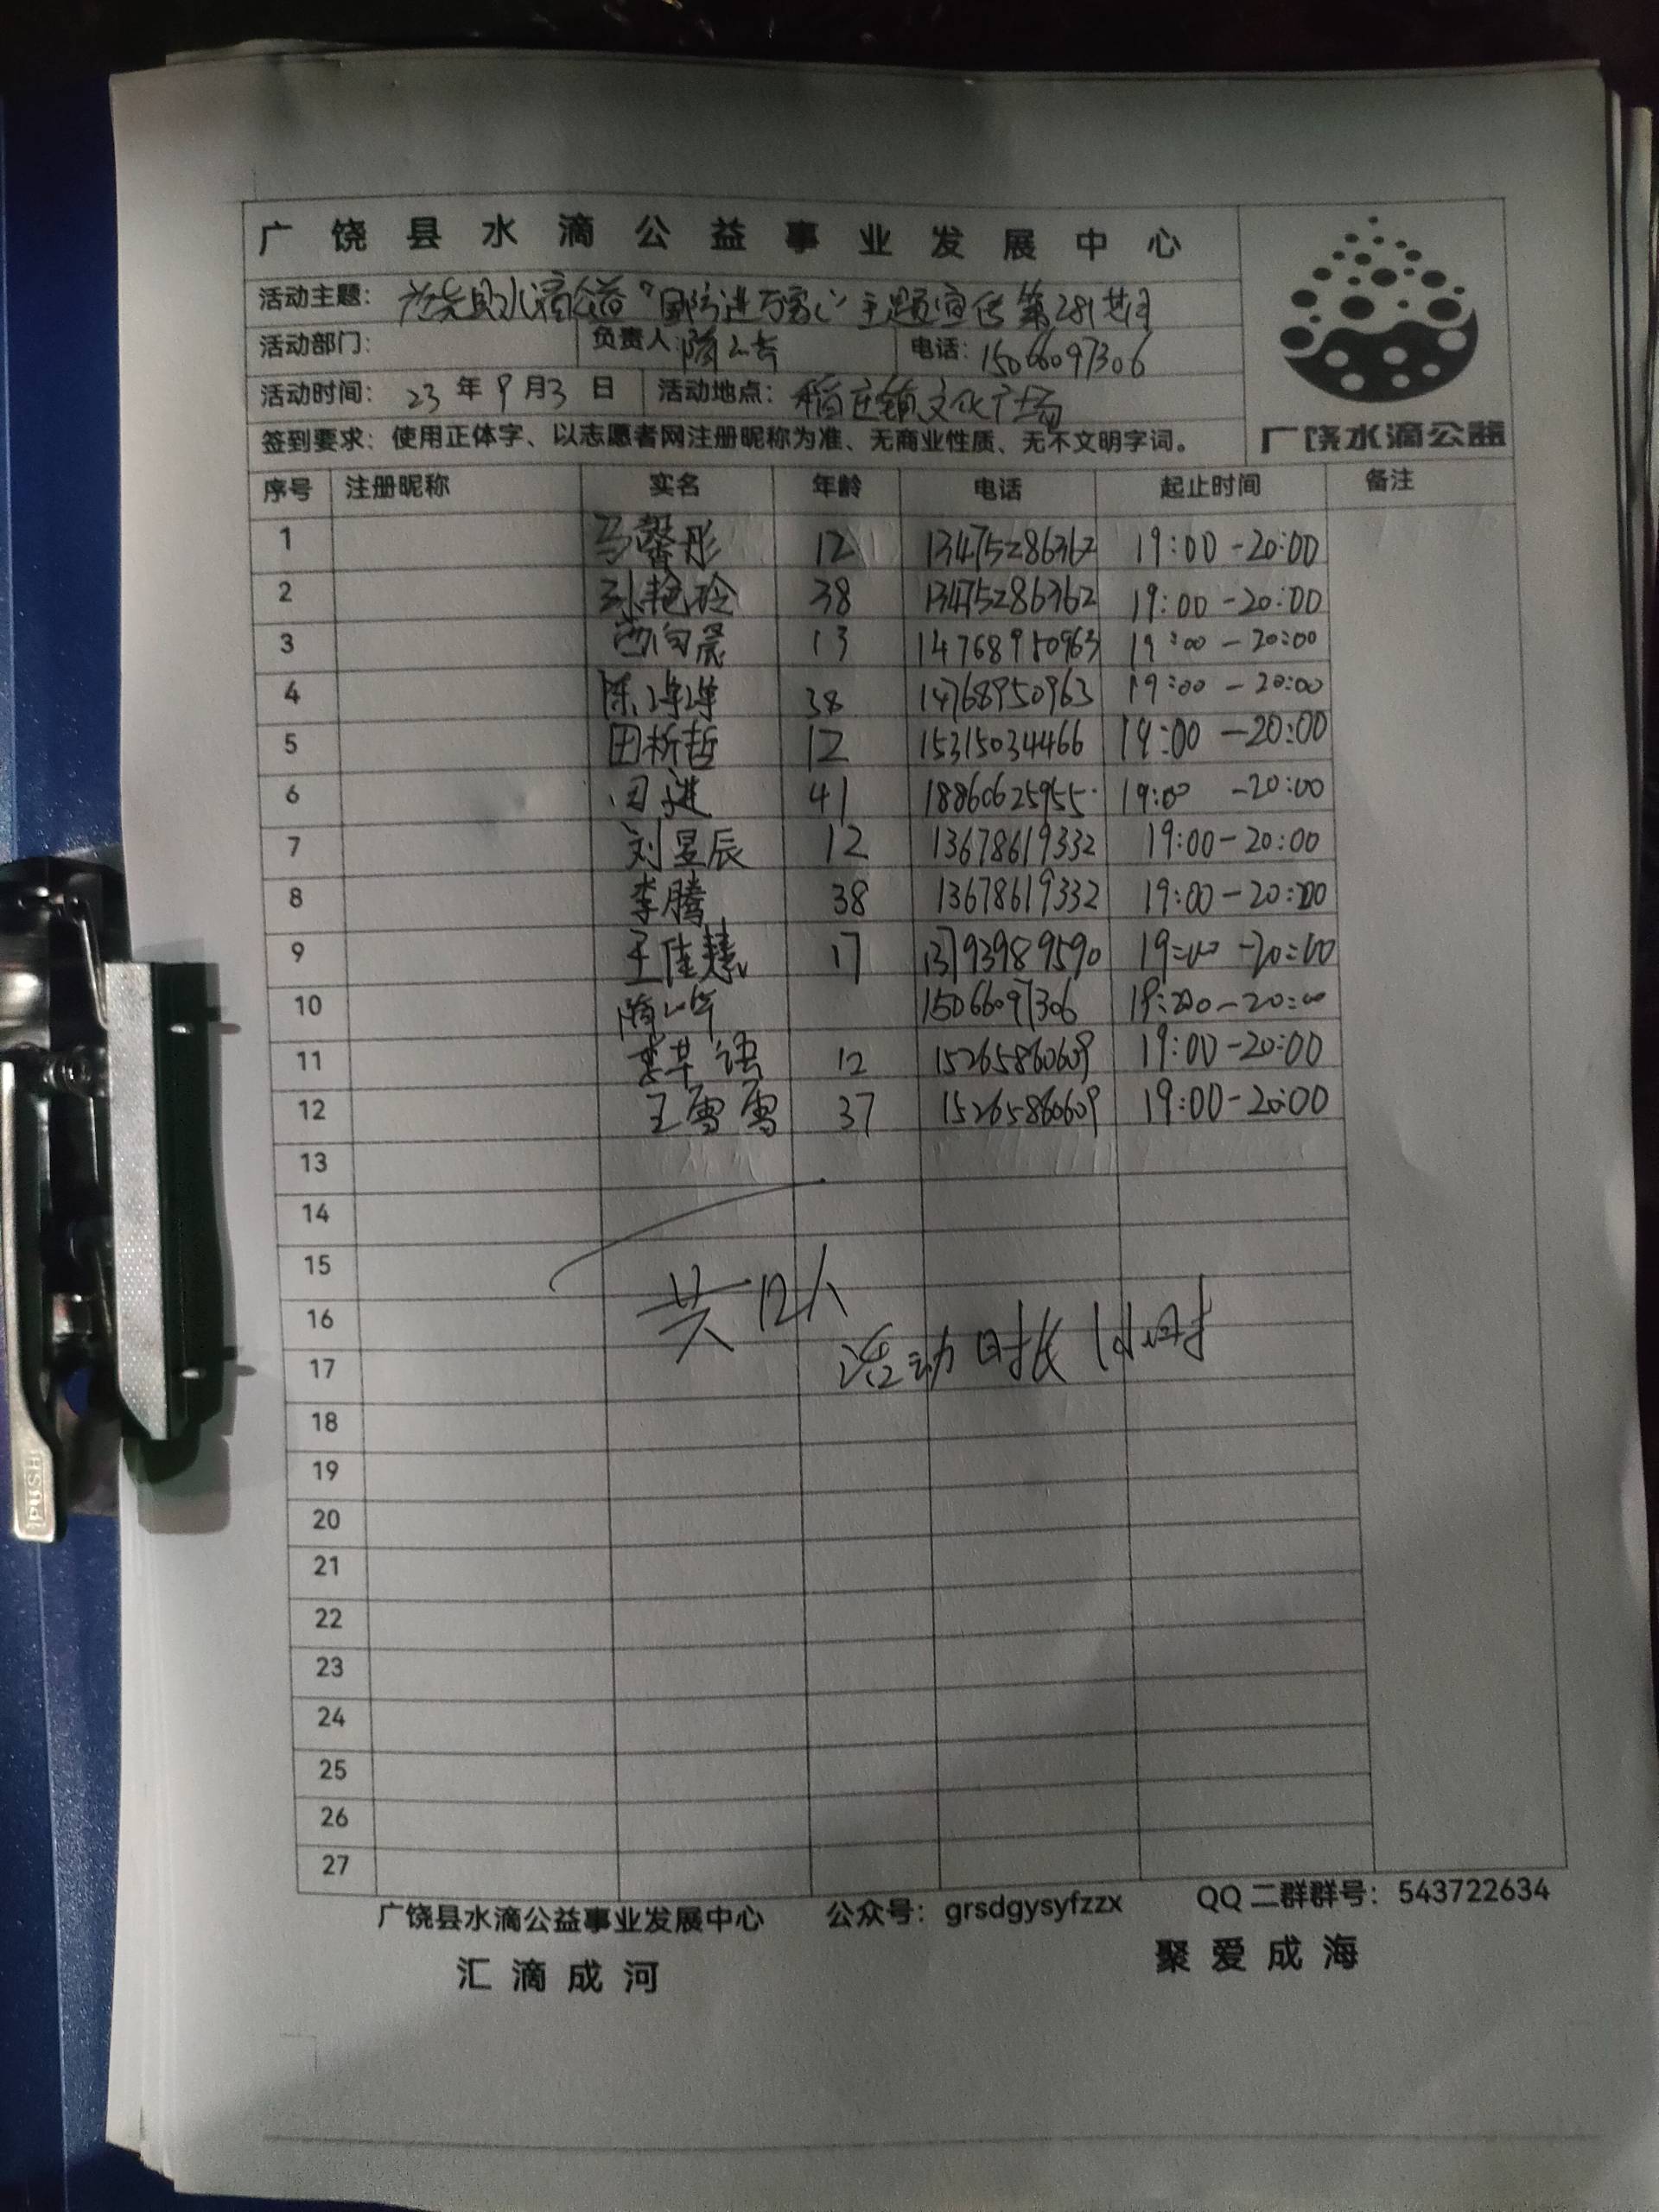 广饶县水滴公益事业发展中心
活动主题：广饶县水滴公益“国防进万家”主题宣传第281期
活动部门： 负责人： 电话：15066097306
活动时间：23年9月3日 活动地点：稻庄镇文化广场
签到要求：使用正体字、以志愿者网注册昵称为准、无商业性质、无不文明字词。
广饶水滴公益
序号 注册昵称 实名 年龄 电话 起止时间 备注
1 马馨彤 12 13475286362 19:00-20:00
2 孙艳玲 38 13475286362 19:00-20:00
3 13 14768950963 19:00-20:00
4 陈婷婷 38 14768950963 19:00-20:00
5 田析哲 12 15315034466 19:00-20:00
6 41 18860625955 19:00-20:00
7 刘昱辰 12 13678619332 19:00-20:00
8 李腾 38 13678619332 19:00-20:00
9 王佳慧 17 13793989590 19:00-20:00
10 15066097306 19:00-20:00
11 12 15265860609 19:00-20:00
12 王雪雪 37 15265860609 19:00-20:00
13
14
15
16
共12人
活动时长1小时
17
18
19
20
21
22
23
24
25
26
27
广饶县水滴公益事业发展中心 公众号：grsdgysyfzzx QQ二群群号：543722634
汇滴成河 聚爱成海
PUSH